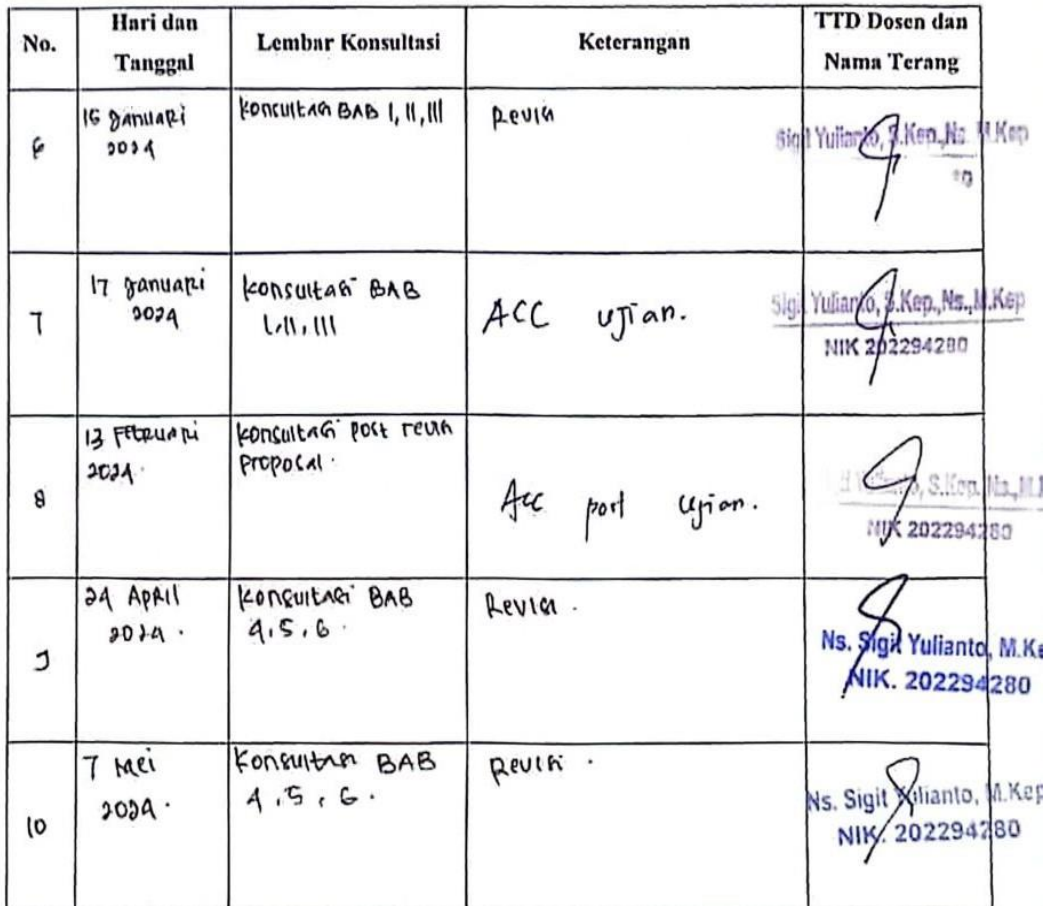 No.
Hari dan
Tanggal
Lembar Konsultasi
Keterangan
TTD Dosen dan
Nama Terang
6
15 Januari
2024
Konsultasi BAB I, II, III
Revisi
Sigit Yulianto, S.Kep.,Ns. M.Kep
7
17 Januari
2024
Konsultasi BAB
I, II, III
ACC Ujian.
Sigit Yulianto, S.Kep.,Ns.,M.Kep
NIK 202294280
8
13 Februari
2024.
Konsultasi post revisi
Proposal.
Acc post Ujian.
S.Kep., Ns., M.K
NIK 202294280
9
24 April
2024.
Konsultasi BAB
4, 5, 6.
Revisi.
Ns. Sigit Yulianto, M.Ke
NIK. 202294280
10
7 Mei
2024.
Konsultasi BAB
4, 5, 6.
Revisi.
Ns. Sigit Yulianto, M.Kep
NIK. 202294280